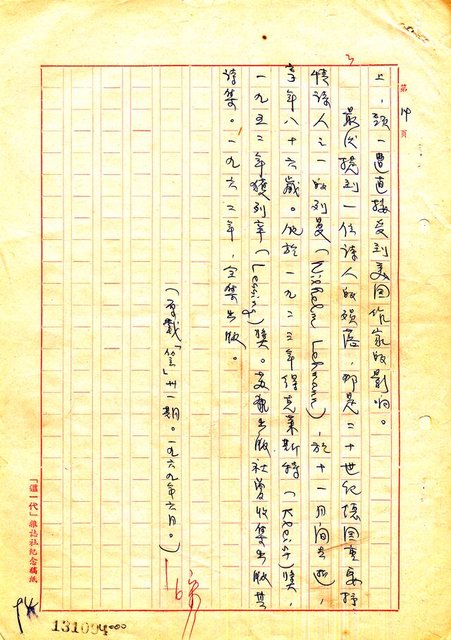 第14頁
上,頭一遭直接受到美国作家的影响。
最後提到一位詩人的殞落,那是二十世紀德国重要抒
情詩人之一的列曼(Wilhelm Lehmann),於十一月間去世,
享年八十六歲。他於一九二三年得克萊斯特(Kleist)獎,
一九五二年獲列辛(Lessing)獎。文藝出版社曾收集出版其
詩集。一九六二年,全集出版。
(原載「笠」卅一期。一九六九年六月。)
「這一代」雜誌社紀念稿紙
131094